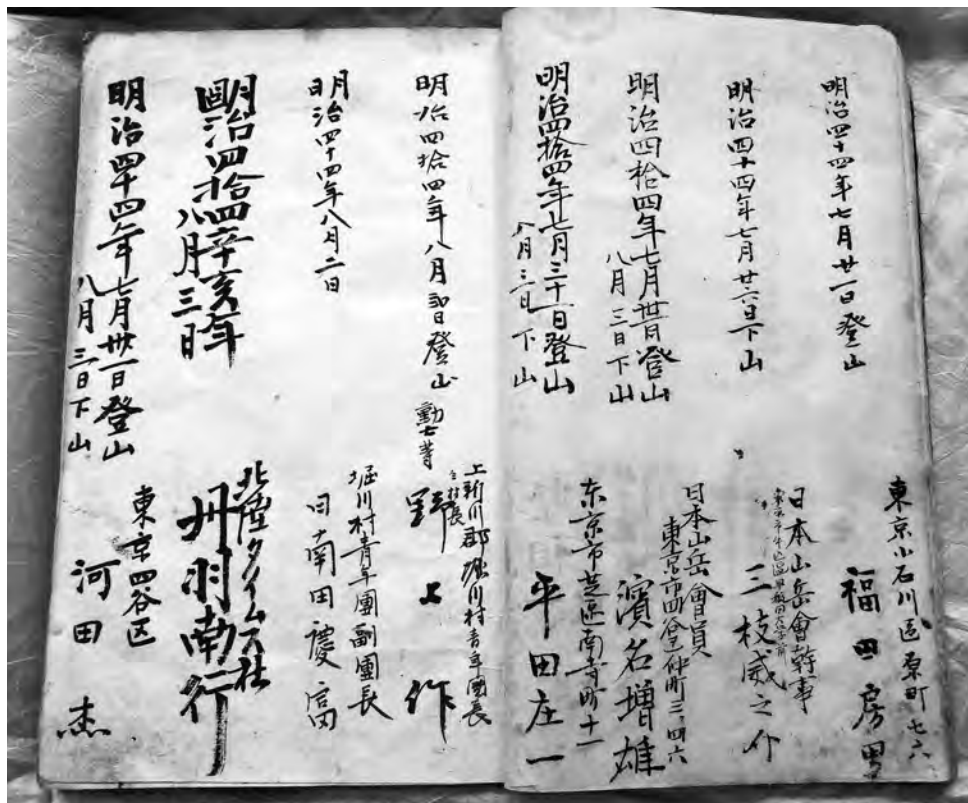 明治四十四年七月廿一日登山
東京小石川區原町七六
福田房男
明治四十四年七月廿六日下山
日本山岳會幹事
三枝威之介
明治四拾四年七月卅一日登山
八月三日下山
日本山岳會員
東京市四谷区仲町三、四六
濱名増雄
明治四拾四年七月三十一日登山
八月三日下山
东京市芝區南寺町十一
平田庄一
明治四拾四年八月 登山
勲七等
上新川郡堀川村青年團長
野上 作
明治四十四年八月二日
堀川村青年團副團長
田南田慶
明治四拾四辛亥年
八月三日
北陸タイムス社
州羽南行
明治四十四年七月卅一日登山
八月三日下山
東京四谷区
河田 杰